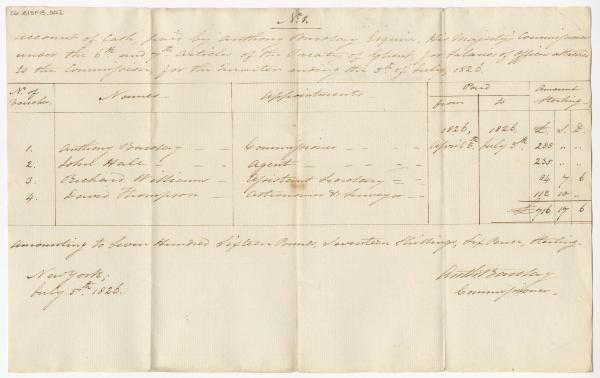 No. 1.
Account of Cash, paid by Anthony Barclay Esquire, His Majesty's Commissioner
under the 6th and 7th Articles of the Treaty of Ghent, for Salaries of Officers attached
to the Commission, for the Quarter ending the 5th of July, 1826.
No. of Voucher Names Appointments Paid from to Amount Sterling
1826, 1826 £. S. D.
1. Anthony Barclay Commissioner April 6th July 5th 285 " "
2. John Hale Agent 235 " "
3. Richard Williams Assistant Secretary 84 7 6
4. David Thompson Astronomer & Surveyor 112 10 "
£ 716 17 6
Amounting to Seven Hundred Sixteen Pounds, Seventeen Shillings, Six Pence, Sterling.
New York,
July 5th 1826.
Anth Barclay
Commissioner